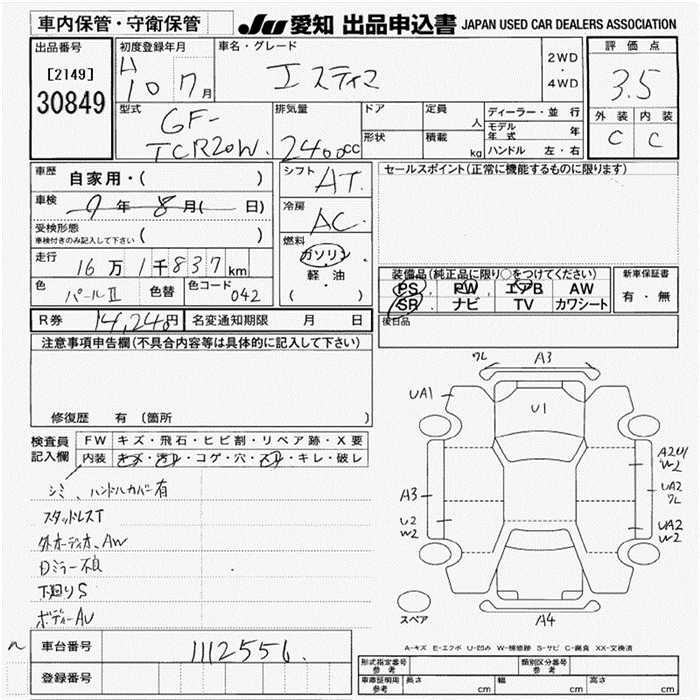 車内保管・守衛保管
JU 愛知 出品申込書 JAPAN USED CAR DEALERS ASSOCIATION
出品番号
[2149]
30849
初度登録年月
H10 7月
車名・グレード
エスティマ
2WD
・
4WD
評価点
3.5
外装 内装
C C
型式
GF-
TCR20W
排気量
2400cc
ドア
形状
定員
人
積載
kg
ディーラー・並行
モデル年式 年
ハンドル 左・右
車歴
自家用・( )
車検
9年8月( 日)
受検形態
車検付きのみ記入して下さい ( )
走行
16万1千837km
色
パールⅡ
色替
色コード
042
シフト
AT
冷房
AC
燃料
ガソリン
・
軽油
( )
セールスポイント(正常に機能するものに限ります)
装備品(純正品に限り○をつけてください)
PS PW エアB AW
SR ナビ TV カワシート
新車保証書
有・無
後日品
R券 14,240円 名変通知期限 月 日
注意事項申告欄(不具合内容等は具体的に記入して下さい)
修復歴 有 (箇所
検査員
記入欄
FW キズ・飛石・ヒビ割・リペア跡・X要
内装 キズ・汚れ・コゲ・穴・スレ・キレ・破レ
シミ、ハンドルカバー有
スタッドレスT
外オーディオ、AW
Dミラー不良
下廻りS
ボディーAU
ワレ A3
UA1
U1
A2U1
W2
A3
UA2
ワレ
U2
W2
UA2
W2
スペア
A4
A-キズ E-エクボ U-凹み W-補修跡 S-サビ C-腐食 XX-交換済
車台番号 1112556
登録番号
形式指定番号
参考
類別区分番号
参考
車庫証明用
参考
長さ cm 幅 cm 高さ cm